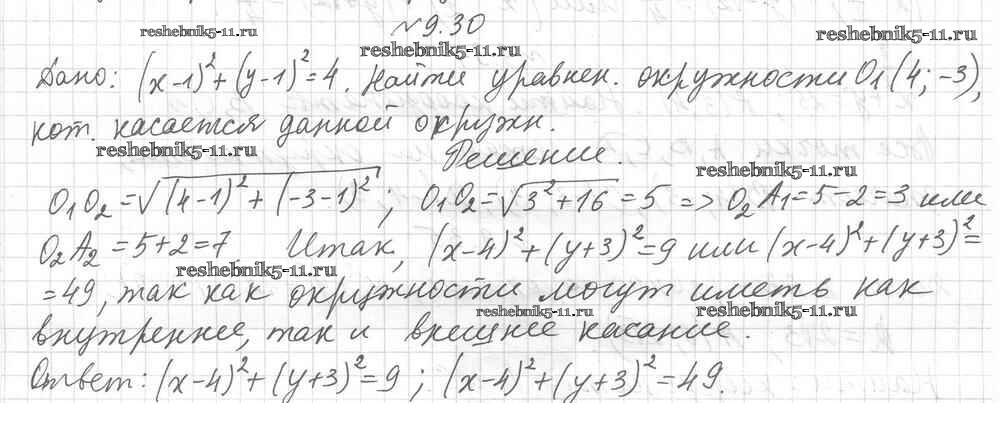 №9.30
reshebnik5-11.ru
reshebnik5-11.ru
reshebnik5-11.ru
Дано: (x-1)²+(y-1)²=4. Найти уравнен. окружности O₁(4; -3),
кот. касается данной окружн.
reshebnik5-11.ru
Решение.
reshebnik5-11.ru
O₁O₂=√((4-1)²+(-3-1)²); O₁O₂=√(3²+16)=5 => O₂A₁=5-2=3 или
O₂A₂=5+2=7. Итак, (x-4)²+(y+3)²=9 или (x-4)²+(y+3)²=
reshebnik5-11.ru
=49, так как окружности могут иметь как
reshebnik5-11.ru
reshebnik5-11.ru
внутреннее, так и внешнее касание.
Ответ: (x-4)²+(y+3)²=9; (x-4)²+(y+3)²=49.